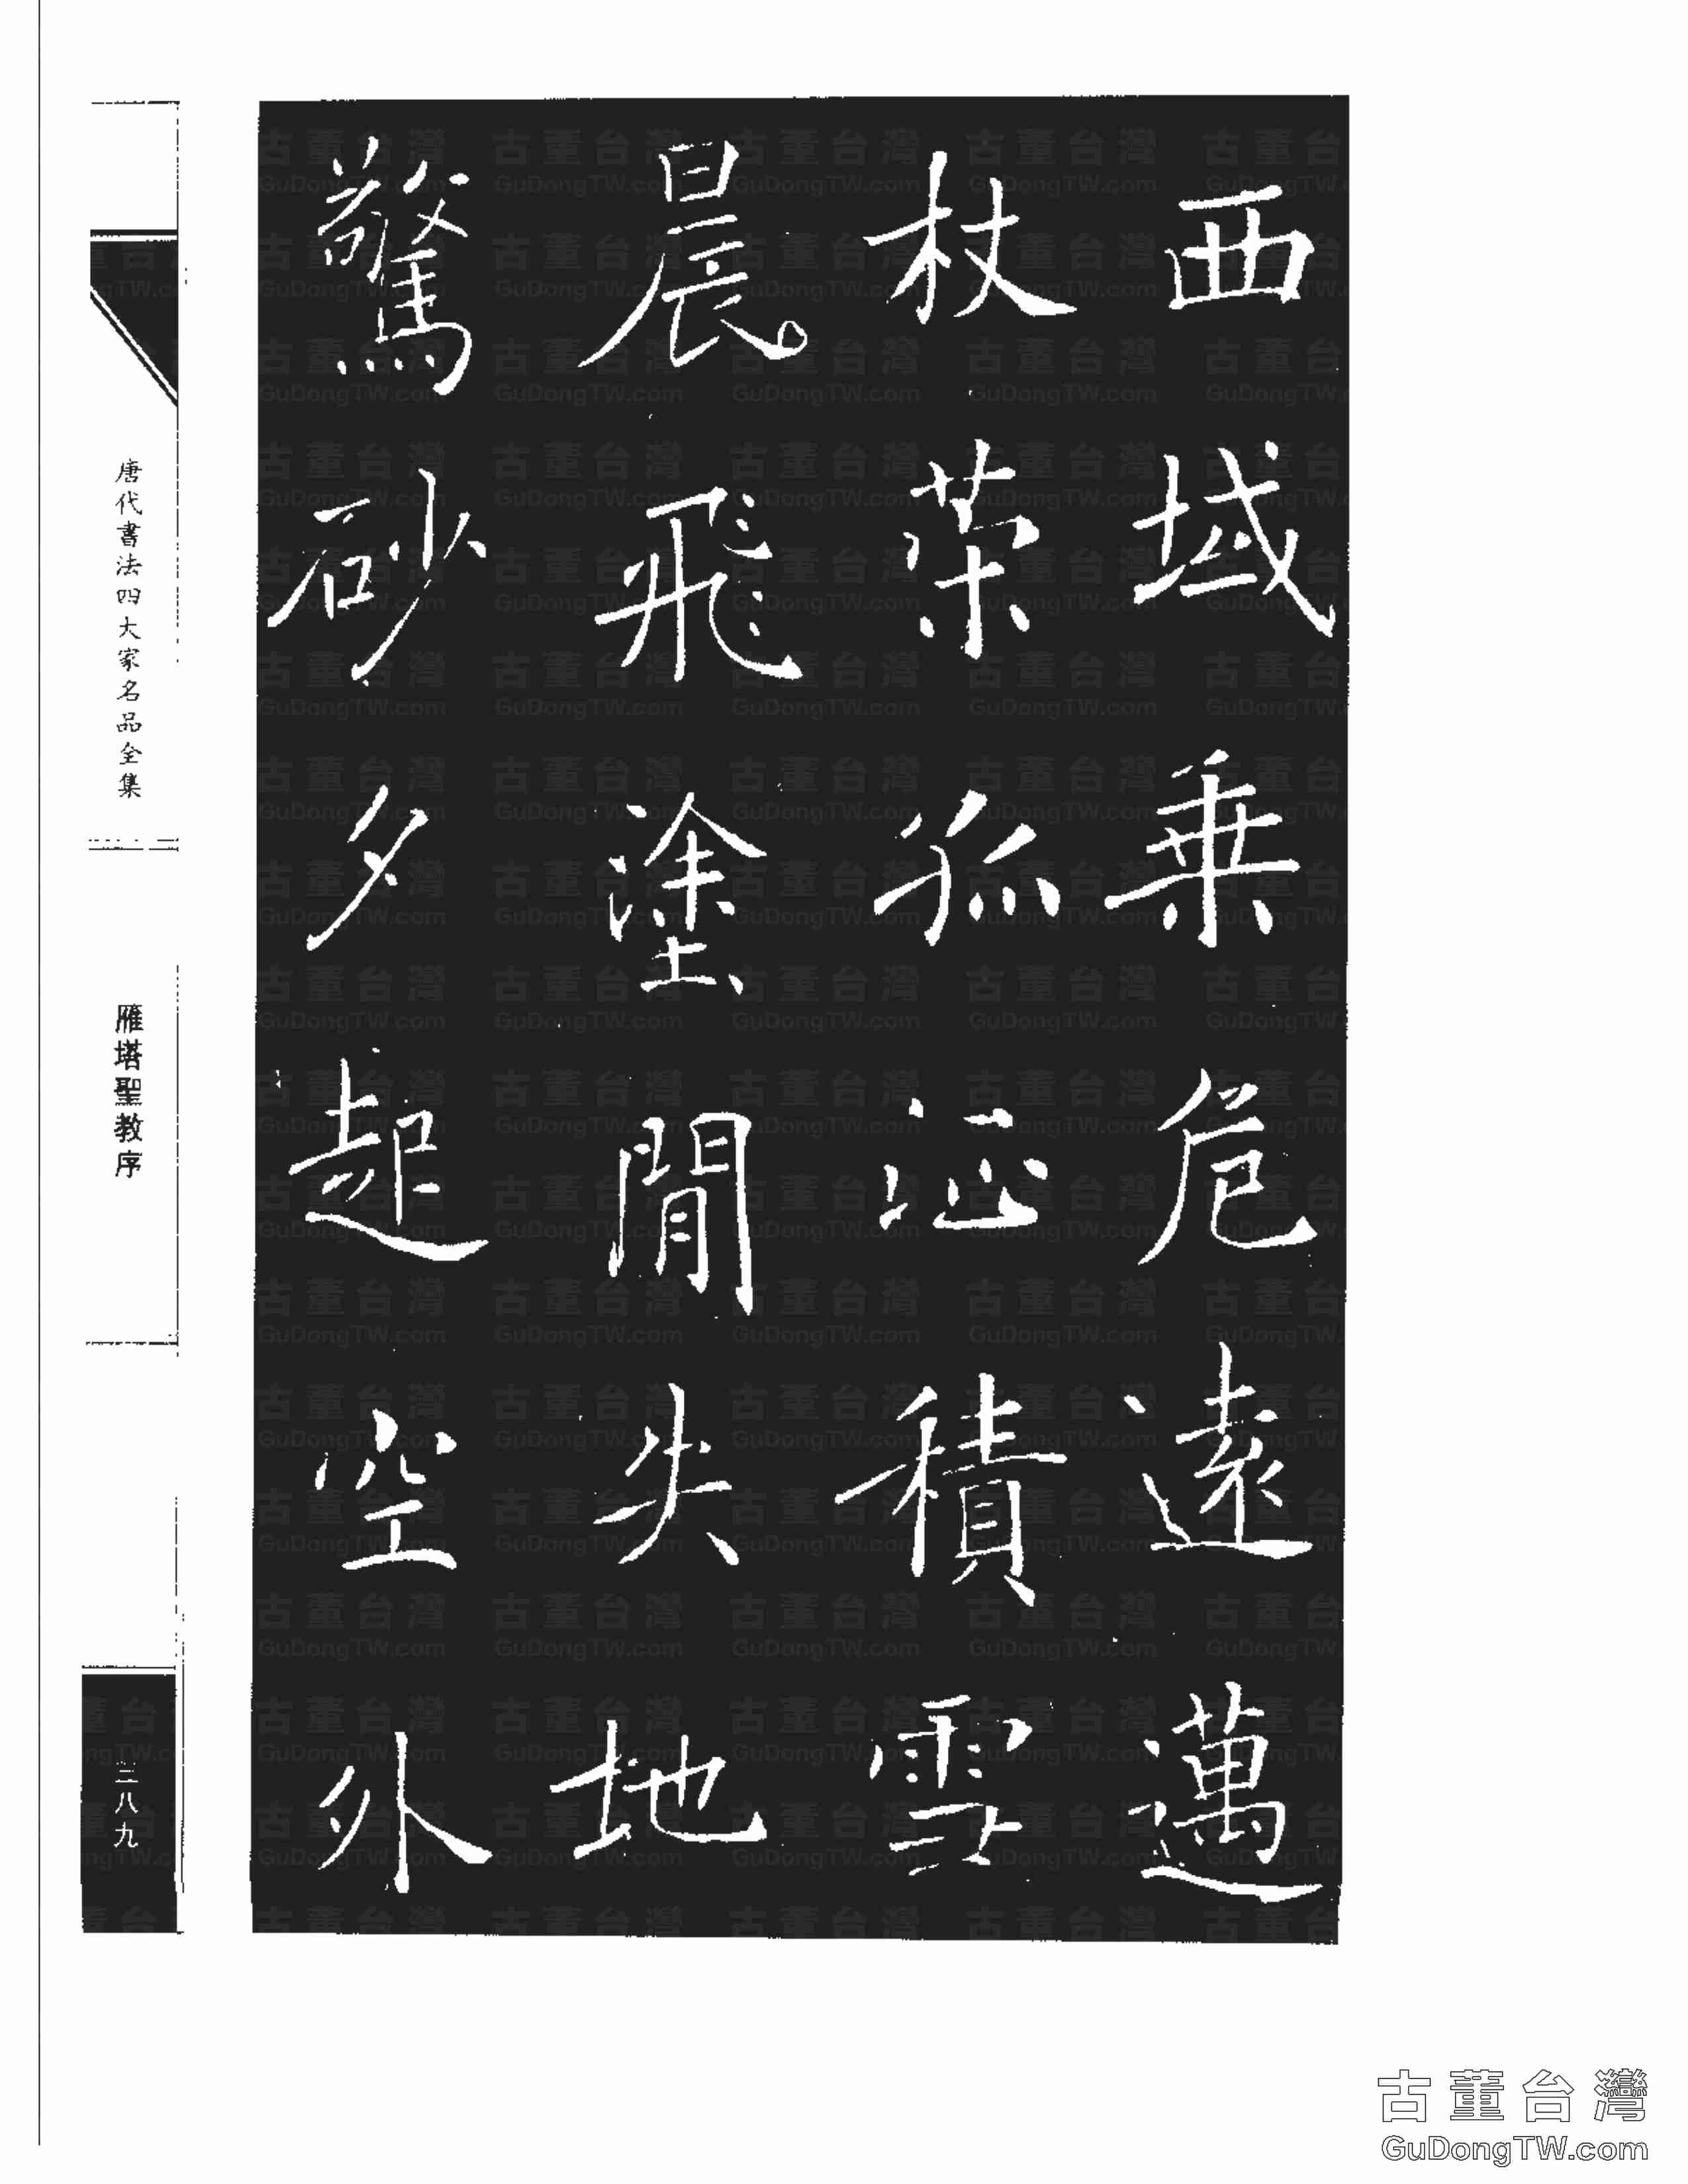 西域乘危遠邁
杖策孤征積雪
晨飛塗閒失地
驚砂夕起空外
唐代書法四大家名品全集
雁塔聖教序
三八九
古董台灣
GuDongTW.com